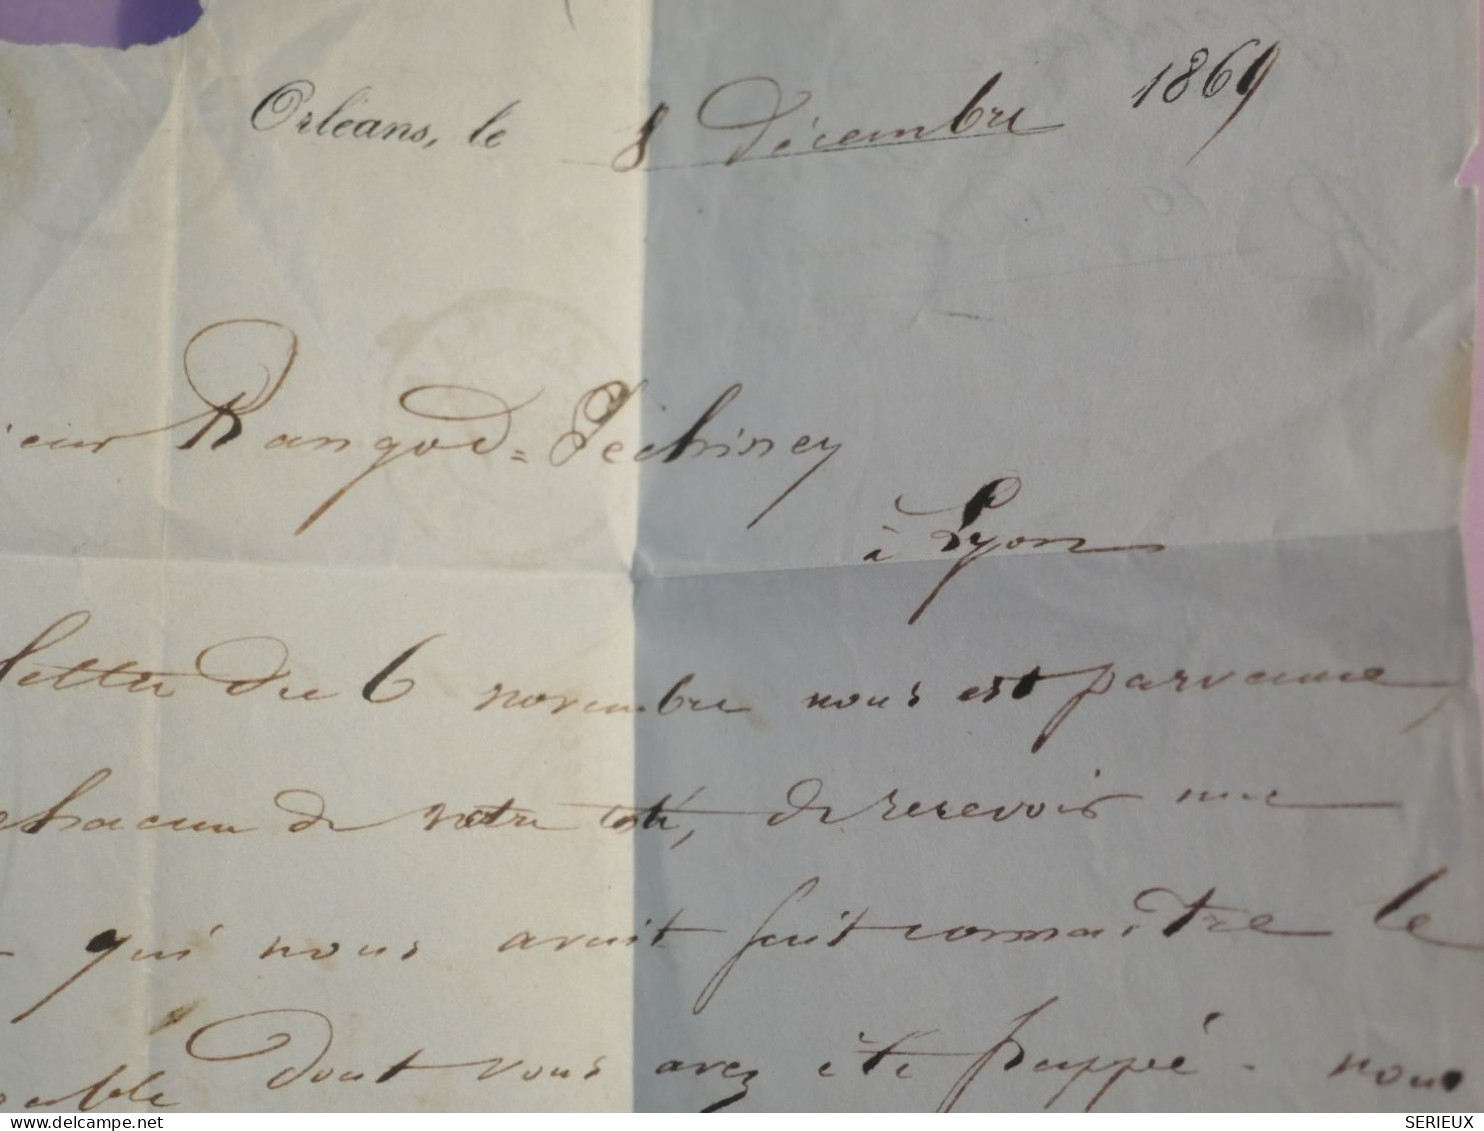 Orléans, le 8 décembre 1869
ieur Rangod=Péchiney
à Lyon
lettre du 6 novembre nous est parvenue,
chacun de notre côté, de recevoir une
qui nous avait fait connaître le
able dont vous avez été frappé. nous
SERIEUX